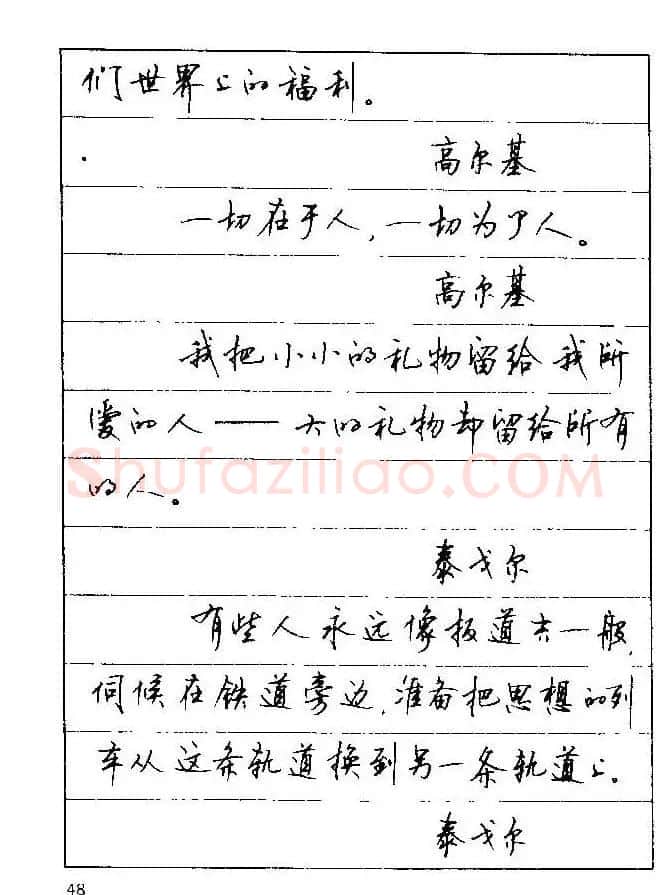 们世界上的福利。
高尔基
一切在于人,一切为了人。
高尔基
我把小小的礼物留给我所
爱的人——大的礼物却留给所有
的人。
Shufaziliao.COM
泰戈尔
有些人永远像扳道夫一般,
伺候在铁道旁边,准备把思想的列
车从这条轨道换到另一条轨道上。
泰戈尔
48